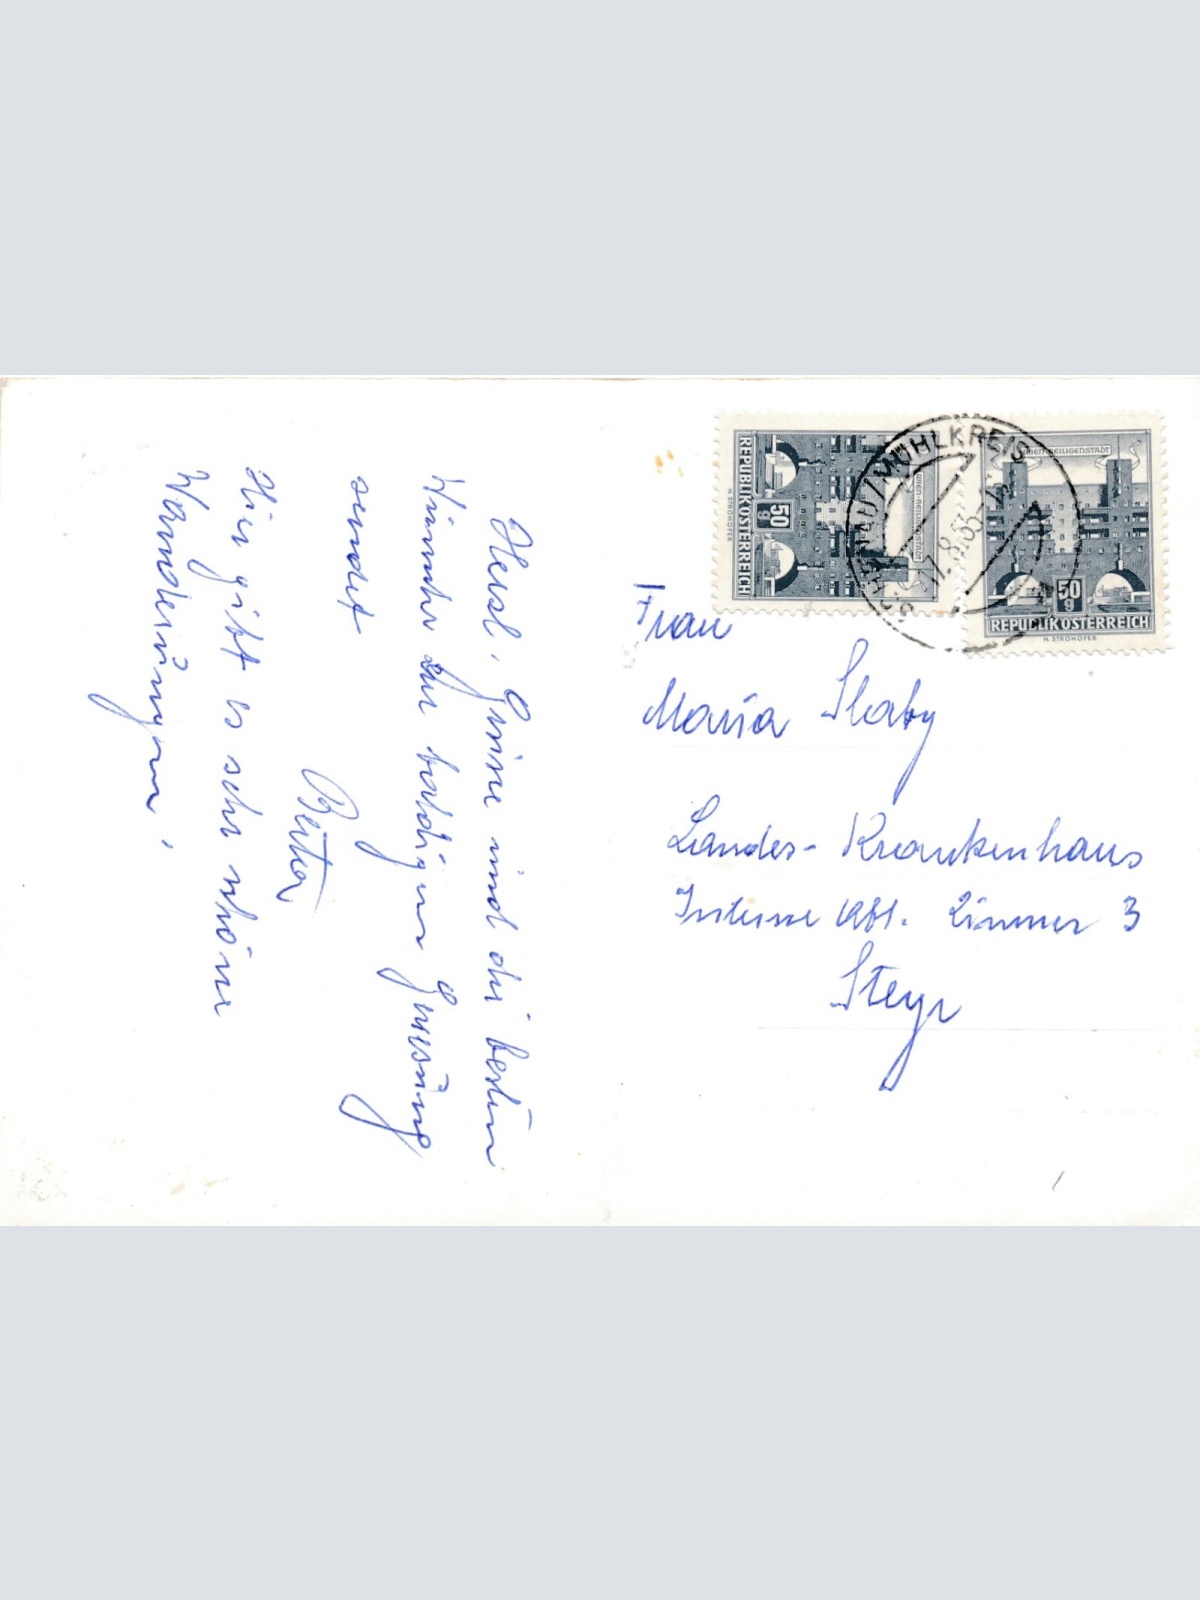 Herzl. Grüsse und die besten
Wünsche zur baldigen Genesung
sendet
Berta
Hier gibt es sehr schöne
Wanderungen.
REPUBLIK ÖSTERREICH
50
g
WIEN-HEILIGENSTADT
H. STROHOFER
WIEN-HEILIGENSTADT
50
g
REPUBLIK ÖSTERREICH
H. STROHOFER
/MÜHLKREIS
17.8.63
Frau
Maria Slaby
Landes-Krankenhaus
Interne Abt. Zimmer 3
Steyr